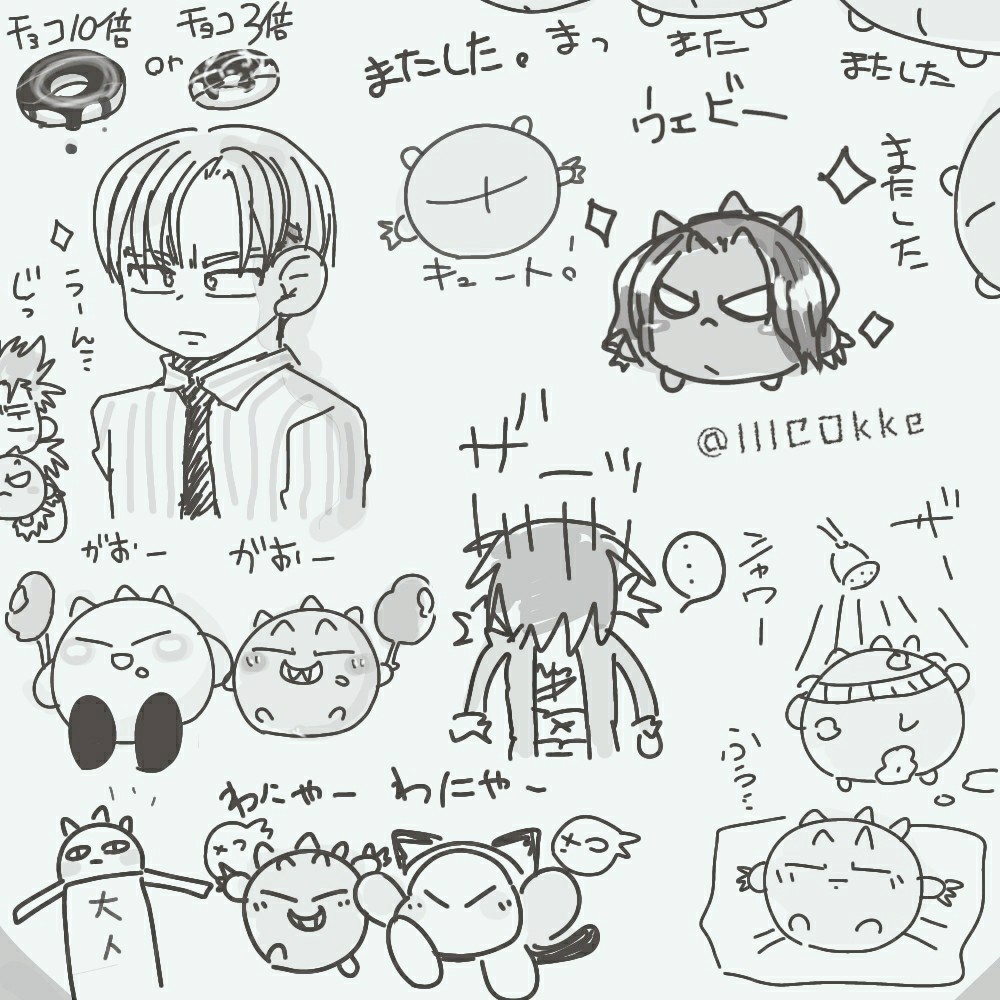 チョコ10倍
or
チョコ3倍
またした。
まっ
また
またした
ウェビー
またした
キュート。
うーん…
じっ
@lllCOkke
ザー
ザー
シャワー
がおー
がおー
ふぅ…
わにゃー
わにゃー
大人